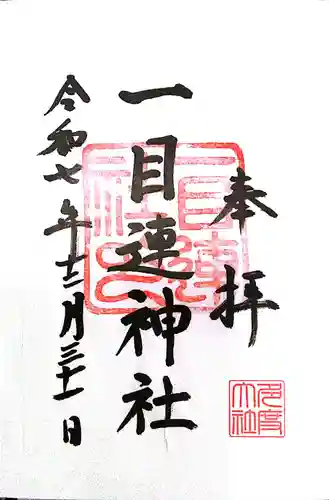 奉拝
一目連神社
令和七年十二月三十一日
一目連神社
多度大社